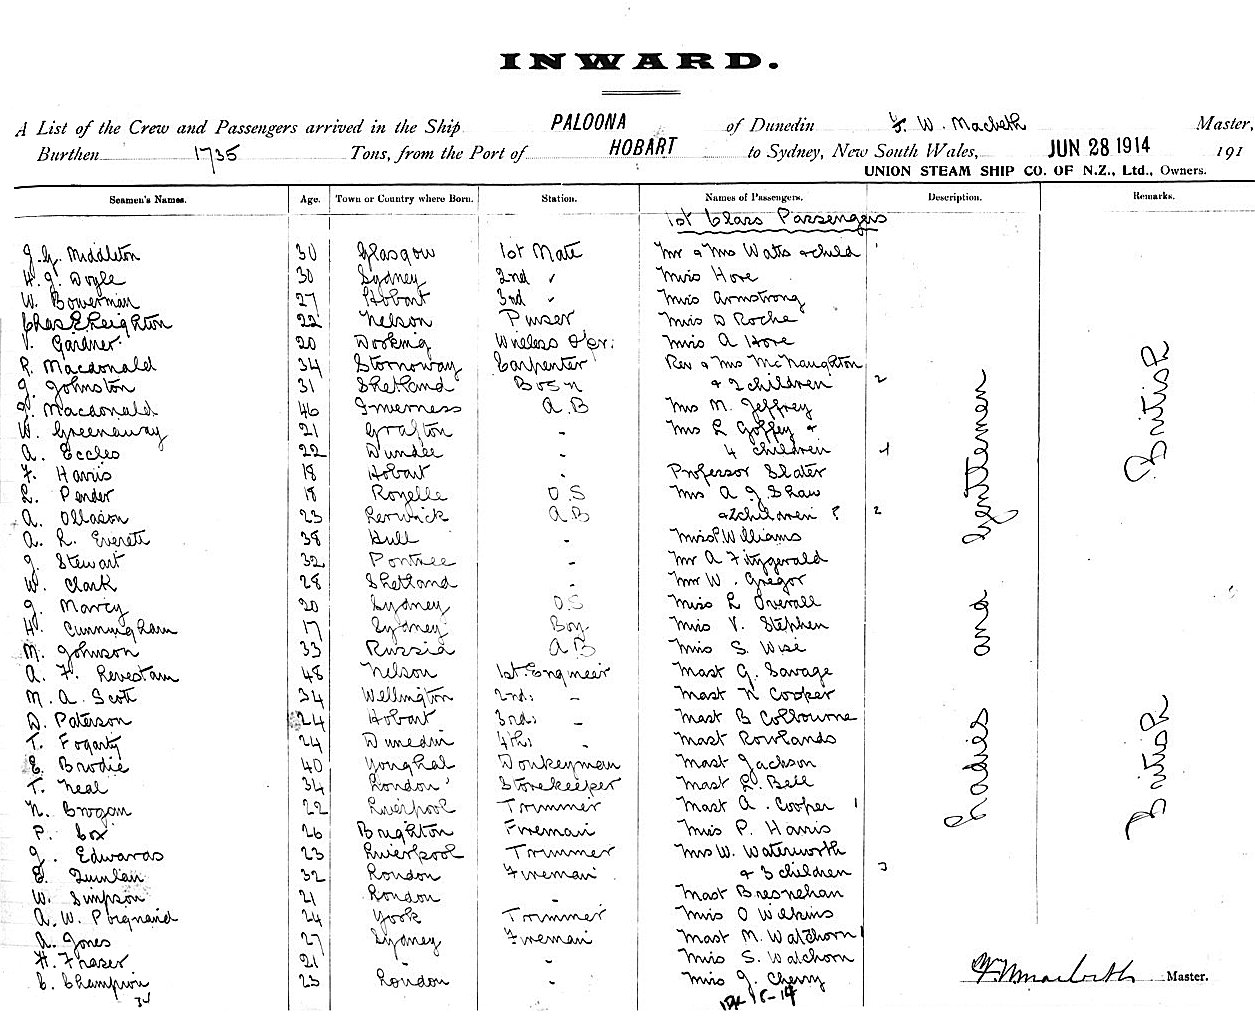 INWARD.
A List of the Crew and Passengers arrived in the Ship PALOONA of Dunedin F. W. Macbeth Master,
Burthen 1735 Tons, from the Port of HOBART to Sydney, New South Wales, JUN 28 1914 191
UNION STEAM SHIP CO. OF N.Z., Ltd., Owners.
Seamen's Names. Age. Town or Country where Born. Station. Names of Passengers. Description. Remarks.
1st Class Passengers
J. G. Middleton 30 Glasgow 1st Mate Mr & Mrs Watts & child 1
H. J. Doyle 30 Sydney 2nd " Miss Hore
W. Bowerman 27 Hobart 3rd " Miss Armstrong
Chas E Leighton 22 Nelson Purser Miss D Roche
V. Gardner 20 Dorking Wireless Opr. Miss A Hore
R. Macdonald 34 Stornoway Carpenter Rev & Mrs McNaughton
J. Johnston 31 Shetland Bosn & 2 children 2
Macdonald 46 Inverness A.B Mrs M. Jeffrey
W. Greenaway 21 Grafton - Mrs L Goffey &
A. Eccles 22 Dundee - 4 children 4
F. Harris 18 Hobart - Professor Slater
L. Pender 18 Rozelle O S Mrs A J Shaw
A. Ollason 23 Lerwick A B & 2 children ? 2
A. R. Everett 38 Hull - Miss P Williams
J. Stewart 32 Portree - Mr A Fitzgerald
W. Clark 28 Shetland - Mr W. Gregor
J. Marcy 20 Sydney O.S Miss L Overall
H. Cunningham 17 Sydney Boy Miss V. Stephen
M. Johnson 33 Russia A B Miss S. Wise
A. H. 48 Nelson 1st Engineer Mast G. Savage
M. A. Scott 34 Wellington 2nd - Mast N Cooper
D. Paterson 24 Hobart 3rd - Mast B Colbourne
T. Fogarty 24 Dunedin 4th - Mast Rowlands
E. Brodie 40 Youghal Donkeyman Mast Jackson
T. Neal 34 London Storekeeper Mast L. Bell
N. Brogan 22 Liverpool Trimmer Mast A. Cooper 1
P. Cox 26 Brighton Fireman Miss P. Harris
J. Edwards 23 Liverpool Trimmer Mrs W. Waterworth
Quinlan 32 London Fireman & 3 children 3
W. Simpson 21 London - Mast Bresnehan
A. W. Poignand 24 York Trimmer Miss O Wilkins
A. Jones 27 Sydney Fireman Mast M. Watchorn 1
H. Fraser 21 - - Miss S. Watchorn
C. Champion 23 London - Miss J. Cherry
34
Ladies and Gentlemen
British
British
F W Macbeth Master.